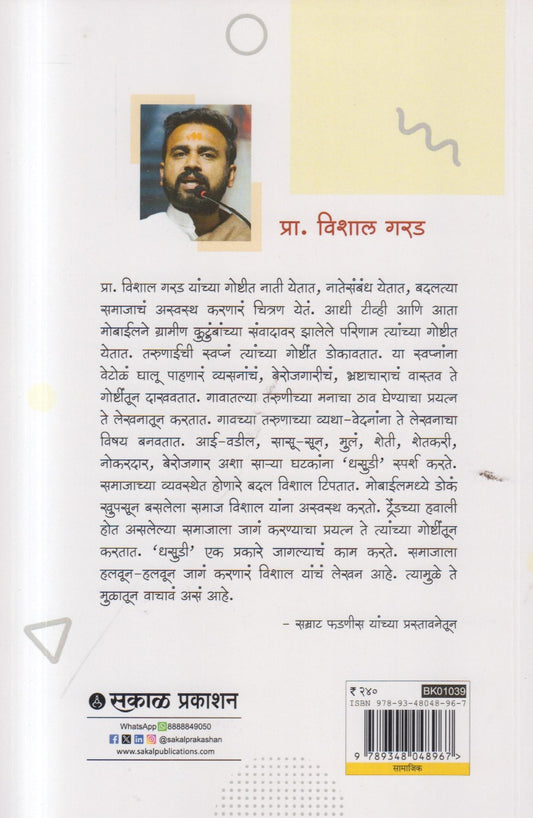 प्रा. विशाल गरड
प्रा. विशाल गरड यांच्या गोष्टीत नाती येतात, नातेसंबंध येतात, बदलत्या
समाजाचं अस्वस्थ करणारं चित्रण येतं. आधी टीव्ही आणि आता
मोबाईलने ग्रामीण कुटुंबांच्या संवादावर झालेले परिणाम त्यांच्या गोष्टीत
येतात. तरुणाईची स्वप्नं त्यांच्या गोष्टींत डोकावतात. या स्वप्नांना
वेटोळं घालू पाहणारं व्यसनांचं, बेरोजगारीचं, भ्रष्टाचाराचं वास्तव ते
गोष्टींतून दाखवतात. गावातल्या तरुणीच्या मनाचा ठाव घेण्याचा प्रयत्न
ते लेखनातून करतात. गावच्या तरुणाच्या व्यथा-वेदनांना ते लेखनाचा
विषय बनवतात. आई-वडील, सासू-सून, मुलं, शेती, शेतकरी,
नोकरदार, बेरोजगार अशा साऱ्या घटकांना ‘धसुडी’ स्पर्श करते.
समाजाच्या व्यवस्थेत होणारे बदल विशाल टिपतात. मोबाईलमध्ये डोकं
खुपसून बसलेला समाज विशाल यांना अस्वस्थ करतो. ट्रेंडच्या हवाली
होत असलेल्या समाजाला जागं करण्याचा प्रयत्न ते त्यांच्या गोष्टींतून
करतात. ‘धसुडी’ एक प्रकारे जागल्याचं काम करते. समाजाला
हलवून-हलवून जागं करणारं विशाल यांचं लेखन आहे. त्यामुळे ते
मुळातून वाचावं असं आहे.
- सम्राट फडणीस यांच्या प्रस्तावनेतून
सकाळ प्रकाशन
WhatsApp 8888849050
@sakalprakashan
www.sakalpublications.com
₹ २४० BK01039
ISBN 978-93-48048-96-7
9 789348 048967
सामाजिक